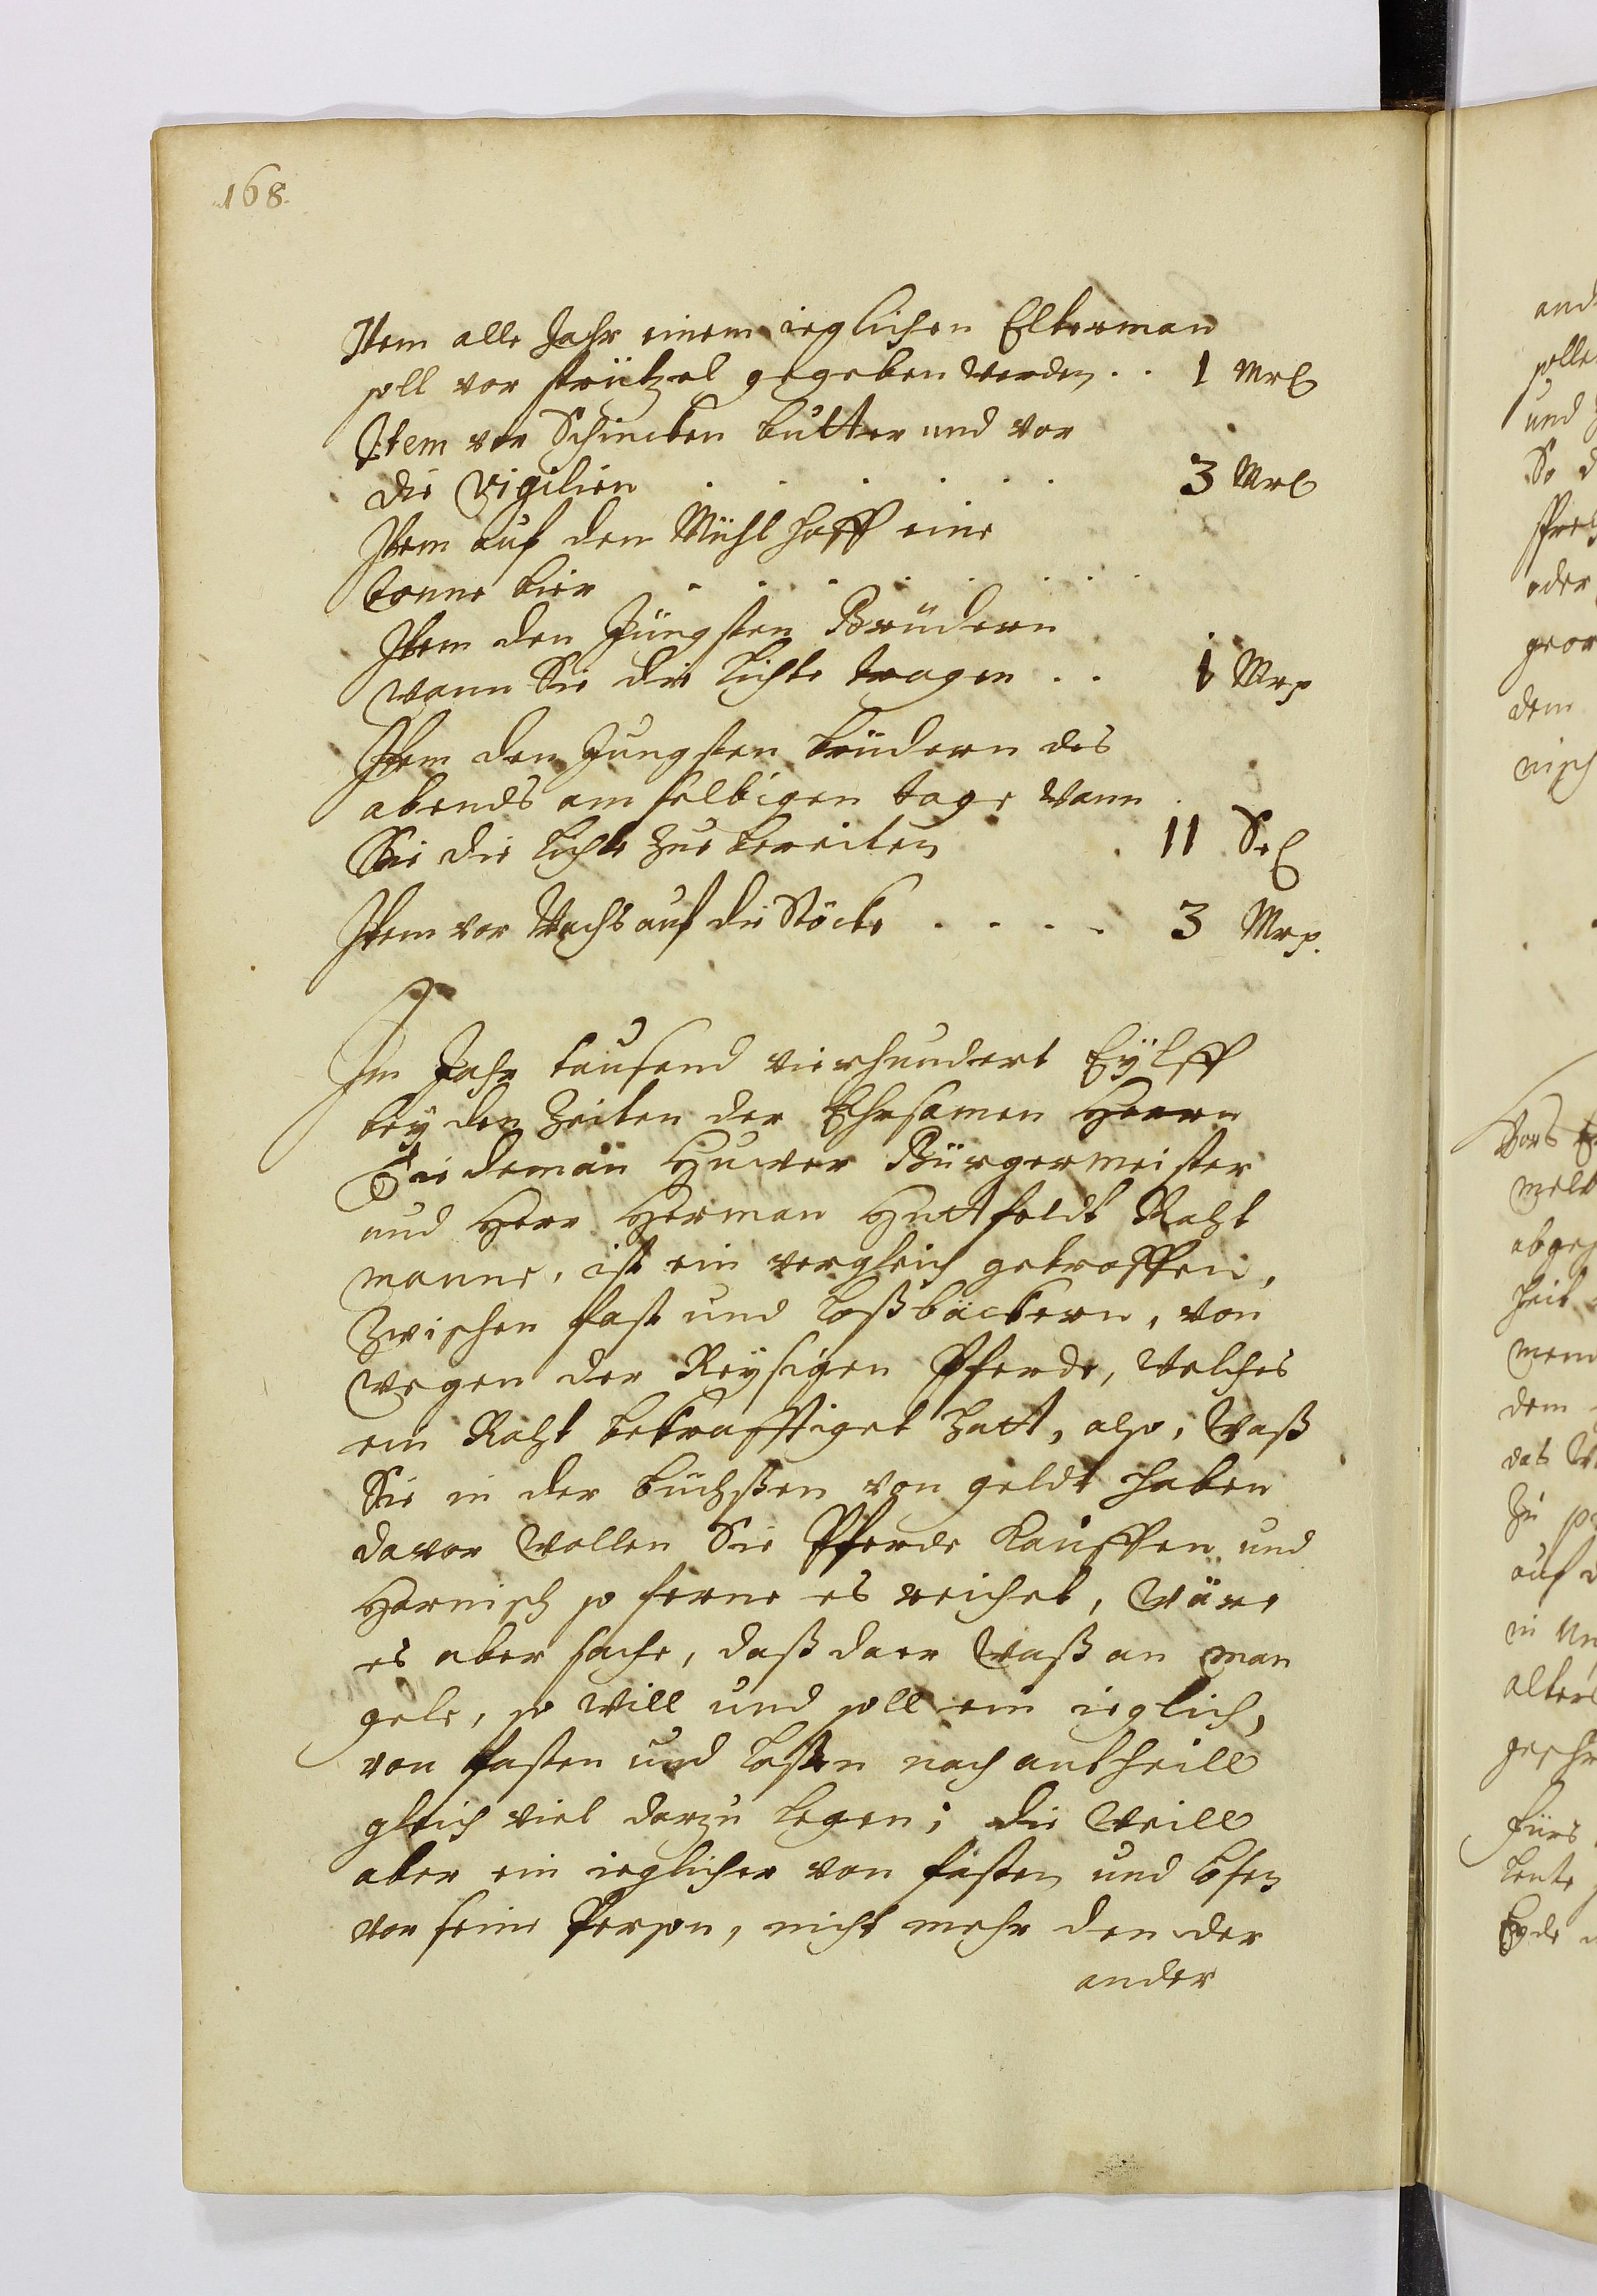 168.
Item alle Jahr einem ieglichen Elterman
soll vor strützel gegeben werden . . 1 Mrß
Item vor Schincken butter und vor
die Vigilien . . . . . . 3 Mrß
Item auf den Mühl hoff eine
tonne bier . . . . . . .
Item den Jüngsten Brüdern
wann Sie die lichte tragen . . 1 Mrß
Item den Jungsten brüdern des
abends am selbigen tage wann
Sie die lichte zue bereiten . 11 Sc
Item vor Wachs auf die Stöcke . . . . 3 Mrß.
Im Jahr tausend vierhundert Eÿlff
beÿ den Zeiten der Ehrsamen Herrn
Tiedeman Huwer Bürgermeister
und Herr Herman Huttfeldt Raht
manne, ist ein vergleich getroffen,
Zwischen fast und loßbäckern, von
wegen der Reÿsigen Pferde, welches
ein Raht bekrafftiget hatt, also, waß
Sie in der büchßen von geldt haben
davor wollen Sie Pferde kauffen und
Harnisch so ferne es reichet, wäre
es aber sache, daß daer waß an man
gele, so will und soll ein ieglich,
von fasten und lossen nach antheill
gleich viel darzu legen; die weill
aber ein ieglicher von fasten und losen
vor seine Person, nicht mehr den der
ander